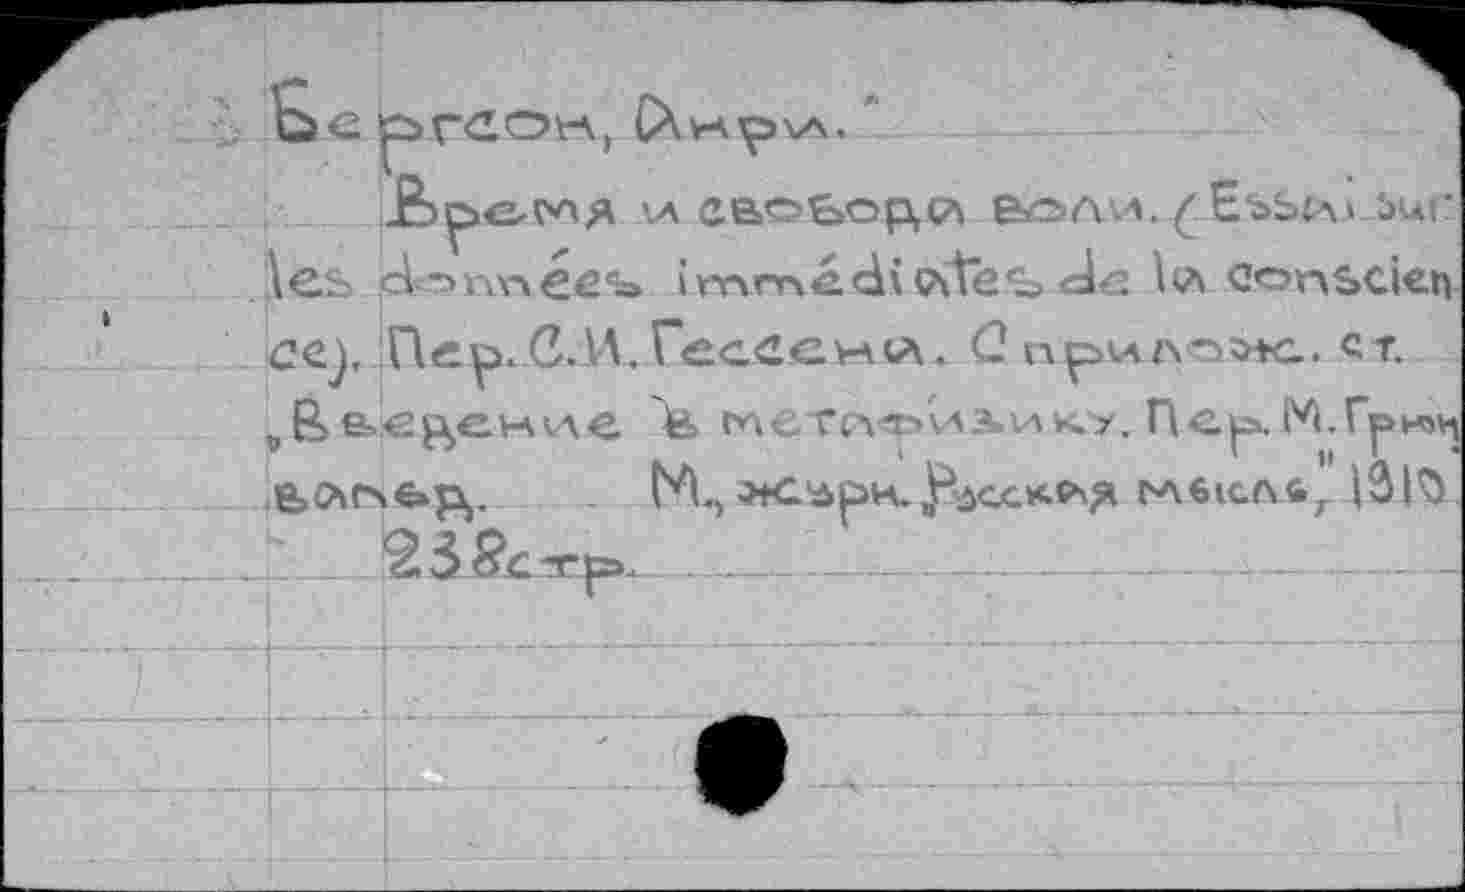 Бергсон, Анри.
Время и свобода воли. (Essai sur
les données immédiates de la conscien
ce). Пер. С.И. Гессена. С прилож. ст.
„Введение в метафизику. Пер. М. Грюн
вальд. М., журн. „Русская мысль", 1910
238 стр.